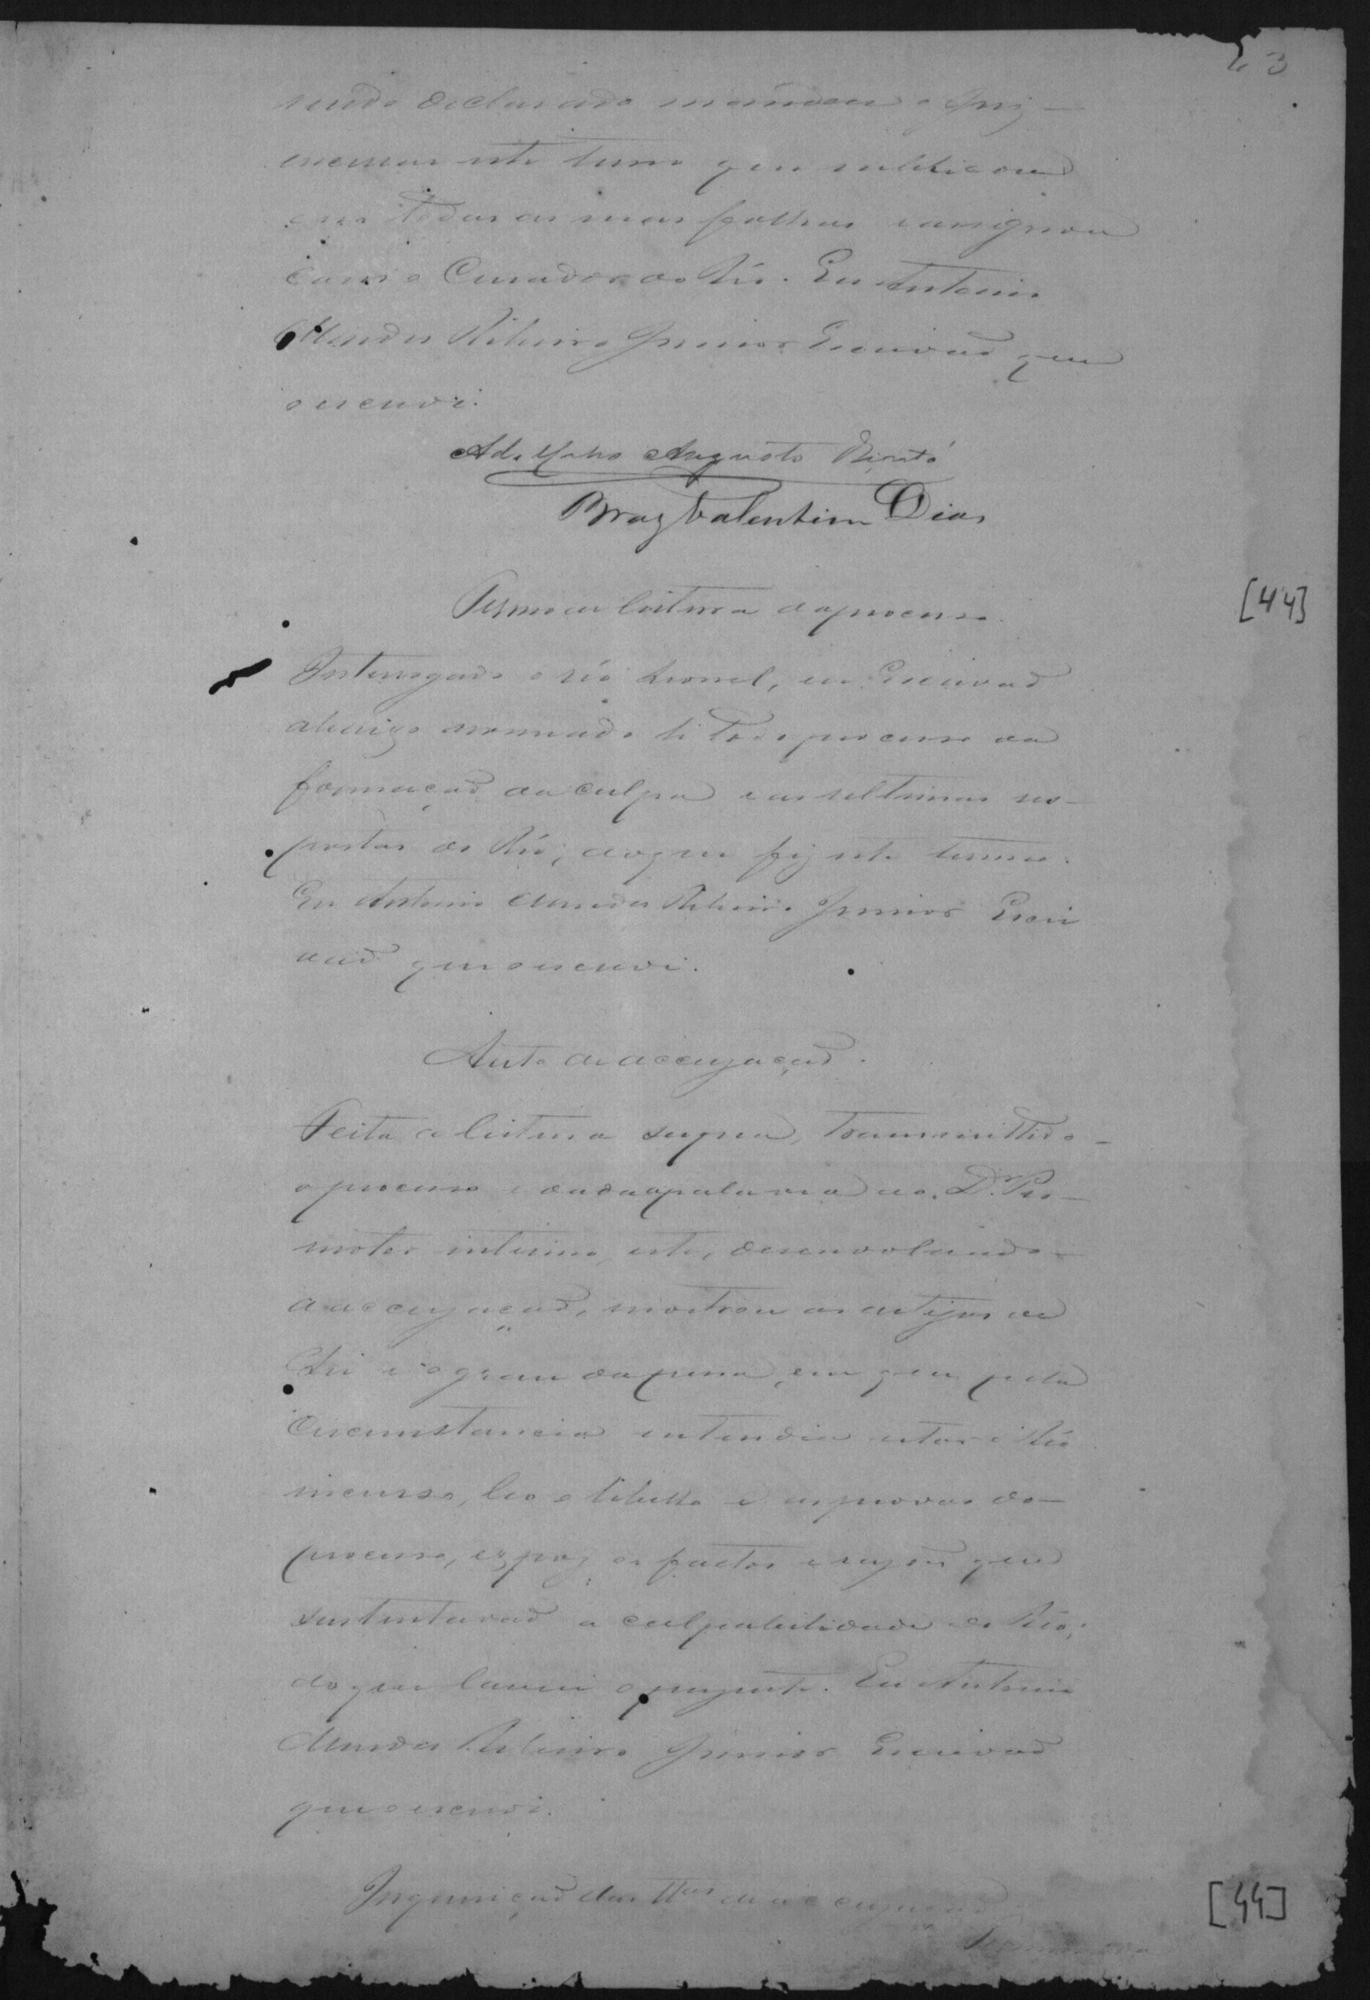 43
sendo declarado mandou o Juiz
escrever este termo que rubricou
em todas as suas folhas e assignou
com o Curador do Réo. Eu Antonio
Mendes Ribeiro Junior Escrivaõ que
o escrevi.
Adolpho Augusto
Braz Valentim Dias
[44]
Termo de leitura do processo.
Interrogado o réo Leonel, eu Escrivaõ
abaixo nomeado li todo o processo da
formaçaõ da culpa e as ultimas res-
postas do Réo; do que fiz este termo.
Eu Antonio Mendes Ribeiro Junior Escri
vaõ que o escrevi.
Auto de accuzaçaõ.
Feita a leitura supra, transmittido
o processo e dada a palavra ao Dr. Pro-
motor interino, este, desenvolvendo
a accuzaçaõ, mostrou os artigos da
Lei e o grau da pena, em que pela
circumstancia entendia estar o Réo
incurso, leo o libello e as provas do
processo, expoz os factos e razões que
sustentavaõ a culpabilidade do Réo;
do que lavrei o prezente. Eu Antonio
Mendes Ribeiro Junior Escrivaõ
que o escrevi.
Inquiriçaõ das ttas de accuzaçaõ
[44]